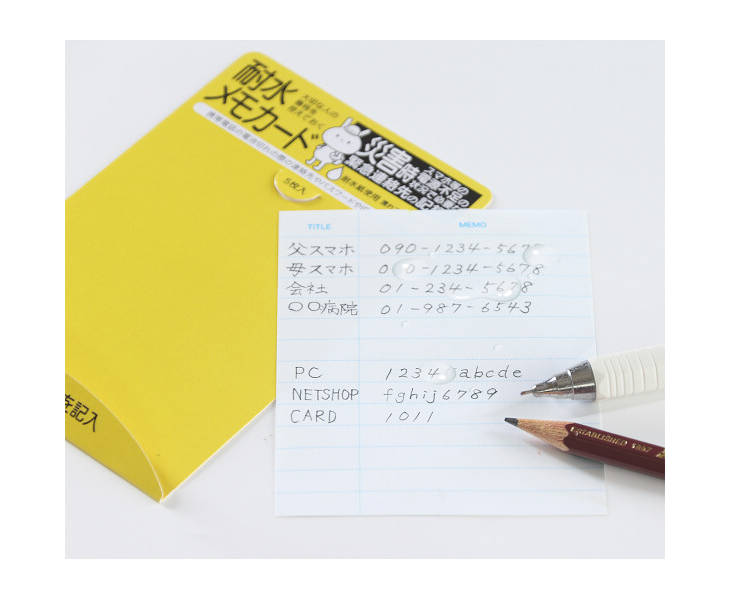 耐水
メモカード
大切な人の
連絡先を
控えておく
災害時
緊急連絡先の記
5枚入
耐水紙使用
を記入
TITLE MEMO
父スマホ 090-1234-567
母スマホ 0 0-1234-5678
会社 01-234-5678
〇〇病院 01-987-6543
PC 1234 abcde
NETSHOP fghij6789
CARD 1011
ESTABLISHED 1887